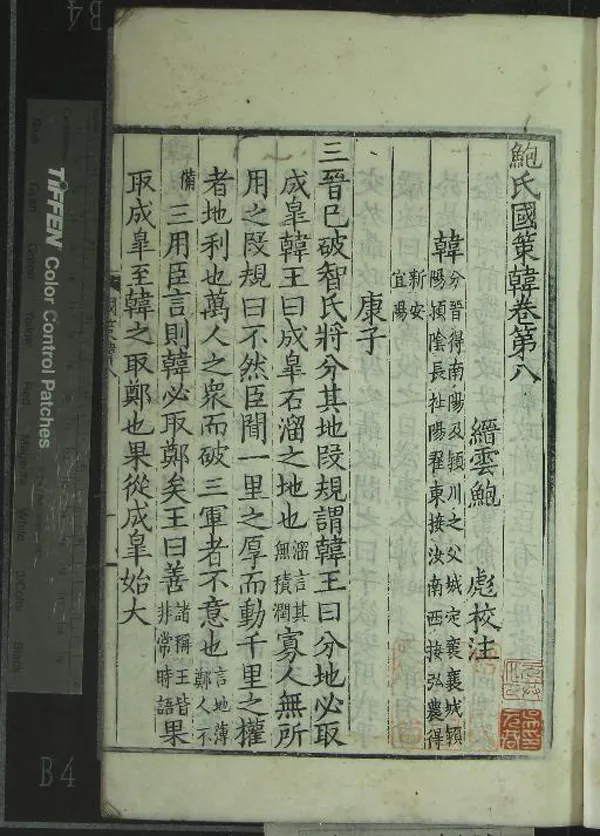 鮑氏國策韓卷第八
縉雲鮑 彪校注
韓 分晉得南陽及潁川之父城定襄襄城潁
陽潁陰長社陽翟東接汝南西接弘農得
新安
宜陽
康子
三晉已破智氏將分其地段規謂韓王曰分地必取
成皐韓王曰成皐石溜之地也 溜言其
無積潤 寡人無所
用之段規曰不然臣聞一里之厚而動千里之權
者地利也萬人之衆而破三軍者不意也 言地薄
鄭人不
備 三用臣言則韓必取鄭矣王曰善 諸稱王皆
非常時語 果
取成皐至韓之取鄭也果從成皐始大
TIFFEN Color Control Patches
B4
B4